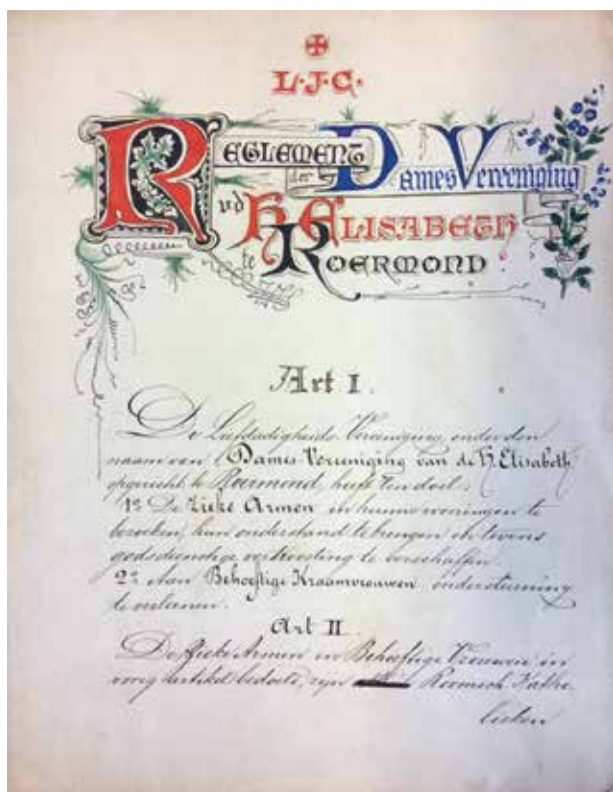 L.J.C.
REGLEMENT der Dames Vereeniging
v d H. ELISABETH
te ROERMOND
Art I.
De Liefdadigheids Vereeniging, onder den
naam van "Dames Vereeniging van de H. Elisabeth"
opgericht te Roermond, heeft ten doel:
1º De Zieke Armen in hunne woningen te
bezoeken, hun onderstand te brengen en tevens
godsdienstige vertroosting te verschaffen.
2º Aan Behoeftige Kraamvrouwen ondersteuning
te verleenen.
Art II.
De Zieke Armen en Behoeftige Vrouwen in
vorig artikel bedoeld, zijn Roomsch Katho-
lieken